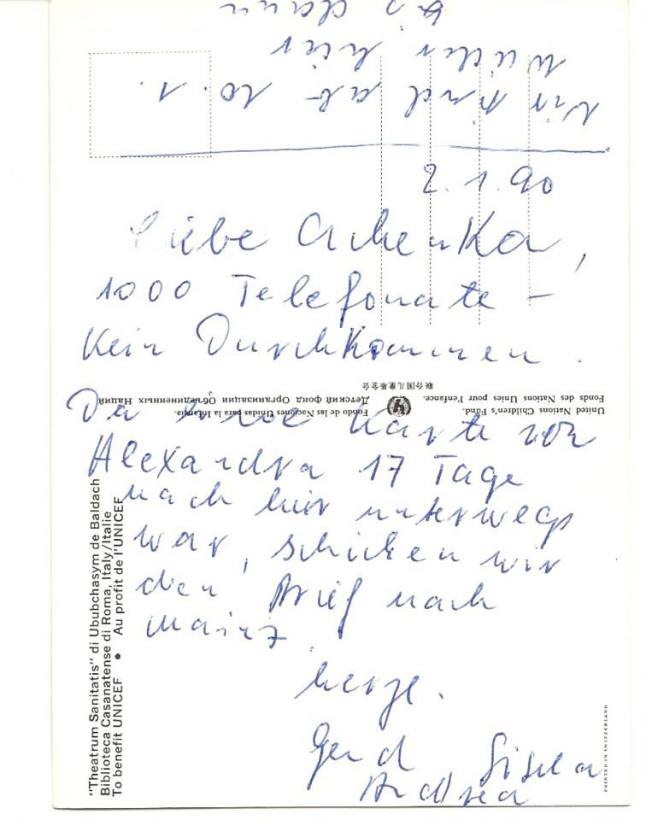 Wir sind ab 10.1.
wieder hier
bis dann
2.1.90
Liebe
1000 Telefonate –
Kein Durchkommen.
Da eine Karte von
Alexandra 17 Tage
nach hier unterwegs
war, schicken wir
den Brief nach
Mainz
herzl.
Gerd Gisela
Andrea
United Nations Children's Fund. Fondo de las Naciones Unidas para la Infancia.
Fonds des Nations Unies pour l'enfance. Детский фонд Организации Объединенных Наций
联合国儿童基金会
"Theatrum Sanitatis" di Ububchasym de Baldach
Biblioteca Casanatense di Roma, Italy/Italie
To benefit UNICEF • Au profit de l'UNICEF
PRINTED IN SWITZERLAND